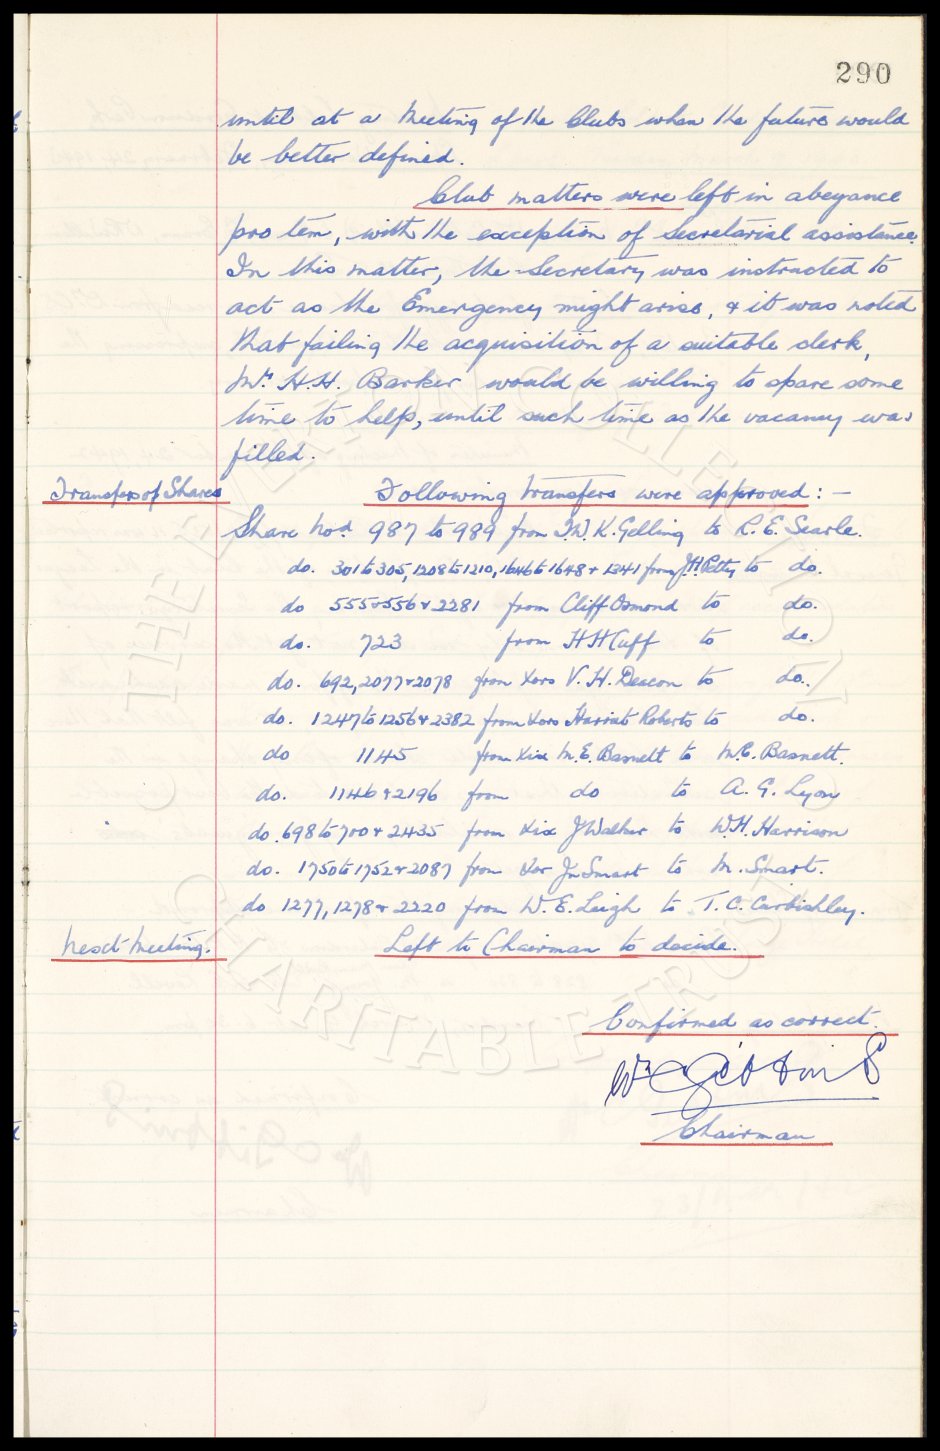 290
until at a Meeting of the Clubs when the future would
be better defined.
Club matters were left in abeyance
pro tem, with the exception of secretarial assistance.
In this matter, the Secretary was instructed to
act as the Emergency might arise, & it was noted
that failing the acquisition of a suitable clerk,
Mr. H.H. Barker would be willing to spare some
time to help, until such time as the vacancy was
filled.
Transfers of Shares Following transfers were approved: -
Share Nos. 987 to 989 from T.W.K. Gelling to R.E. Searle.
do. 301 to 305, 1208 to 1210, 1646 to 1648 & 1341 from J.H. Petty to do.
do 555 & 556 & 2281 from Cliff Osmond to do.
do. 723 from H H Cuff to do.
do. 692, 2077 & 2078 from Xors V.H. Deacon to do.
do. 1247 to 1256 & 2382 from Xors Harriet Roberts to do.
do 1145 from Xix M.E. Basnett to M.E. Basnett.
do. 1146 & 2196 from do to A.G. Lyon
do. 698 to 700 & 2435 from Xix J Walker to W.H. Harrison
do. 1750 to 1752 & 2087 from Xor Jn Smart to M. Smart.
do 1277, 1278 & 2220 from W.E. Leigh to T.C. Carbishley.
Next Meeting. Left to Chairman to decide.
Confirmed as correct.
Wm C Gibbins
Chairman
THE EVERTON COLLECTION
CHARITABLE TRUST